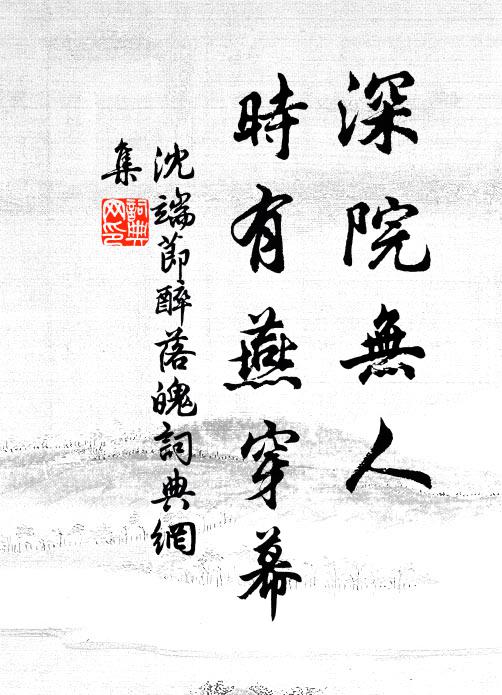 深院無人
時有燕穿幕
沈端節醉落魄詞典網
集
詞典
网印